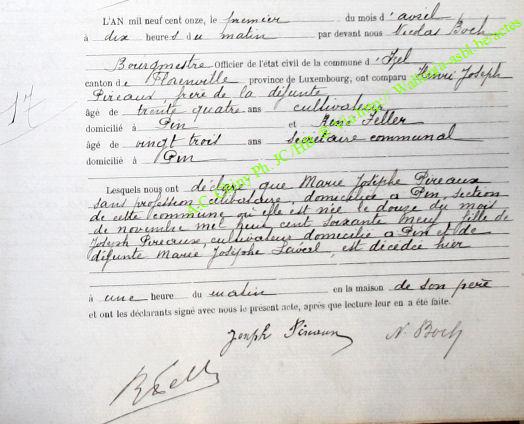 L'AN mil neuf cent onze, le premier du mois d'avril
à dix heures du matin par devant nous Nicolas Boch
Bourgmestre Officier de l'état civil de la commune d'Izel
canton de Florenville province de Luxembourg, ont comparu Henri Joseph
Pireaux, frère de la défunte
âgé de trente quatre ans cultivateur
domicilié à Pin et René Feller
âgé de vingt trois ans secrétaire communal
domicilié à Pin
17
Lesquels nous ont déclaré que Marie Josèphe Pireaux
sans profession célibataire, domiciliée à Pin, section
de cette commune qu'elle est née le douze du mois
de novembre mil huit cent soixante neuf fille de
Joseph Pireaux, cultivateur domicilié à Pin et de
défunte Marie Josèphe est décédée hier
à une heure du matin en la maison de son père
et ont les déclarants signé avec nous le présent acte, après que lecture leur en a été faite.
Joseph Pireaux N. Boch